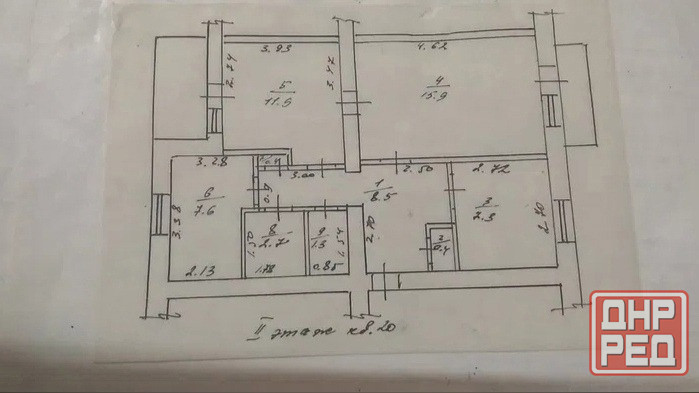 3.93
4.62
2.74
3.47
5
11.9
4
15.9
3.28
3.00
2.50
2.72
6
7.6
1
8.5
3
7.3
3.38
2.70
2.70
8
2.7
9
1.3
1.54
2
0.4
1.50
2.13
1.78
0.85
II этаж кв. 20
ДНР
РЕД